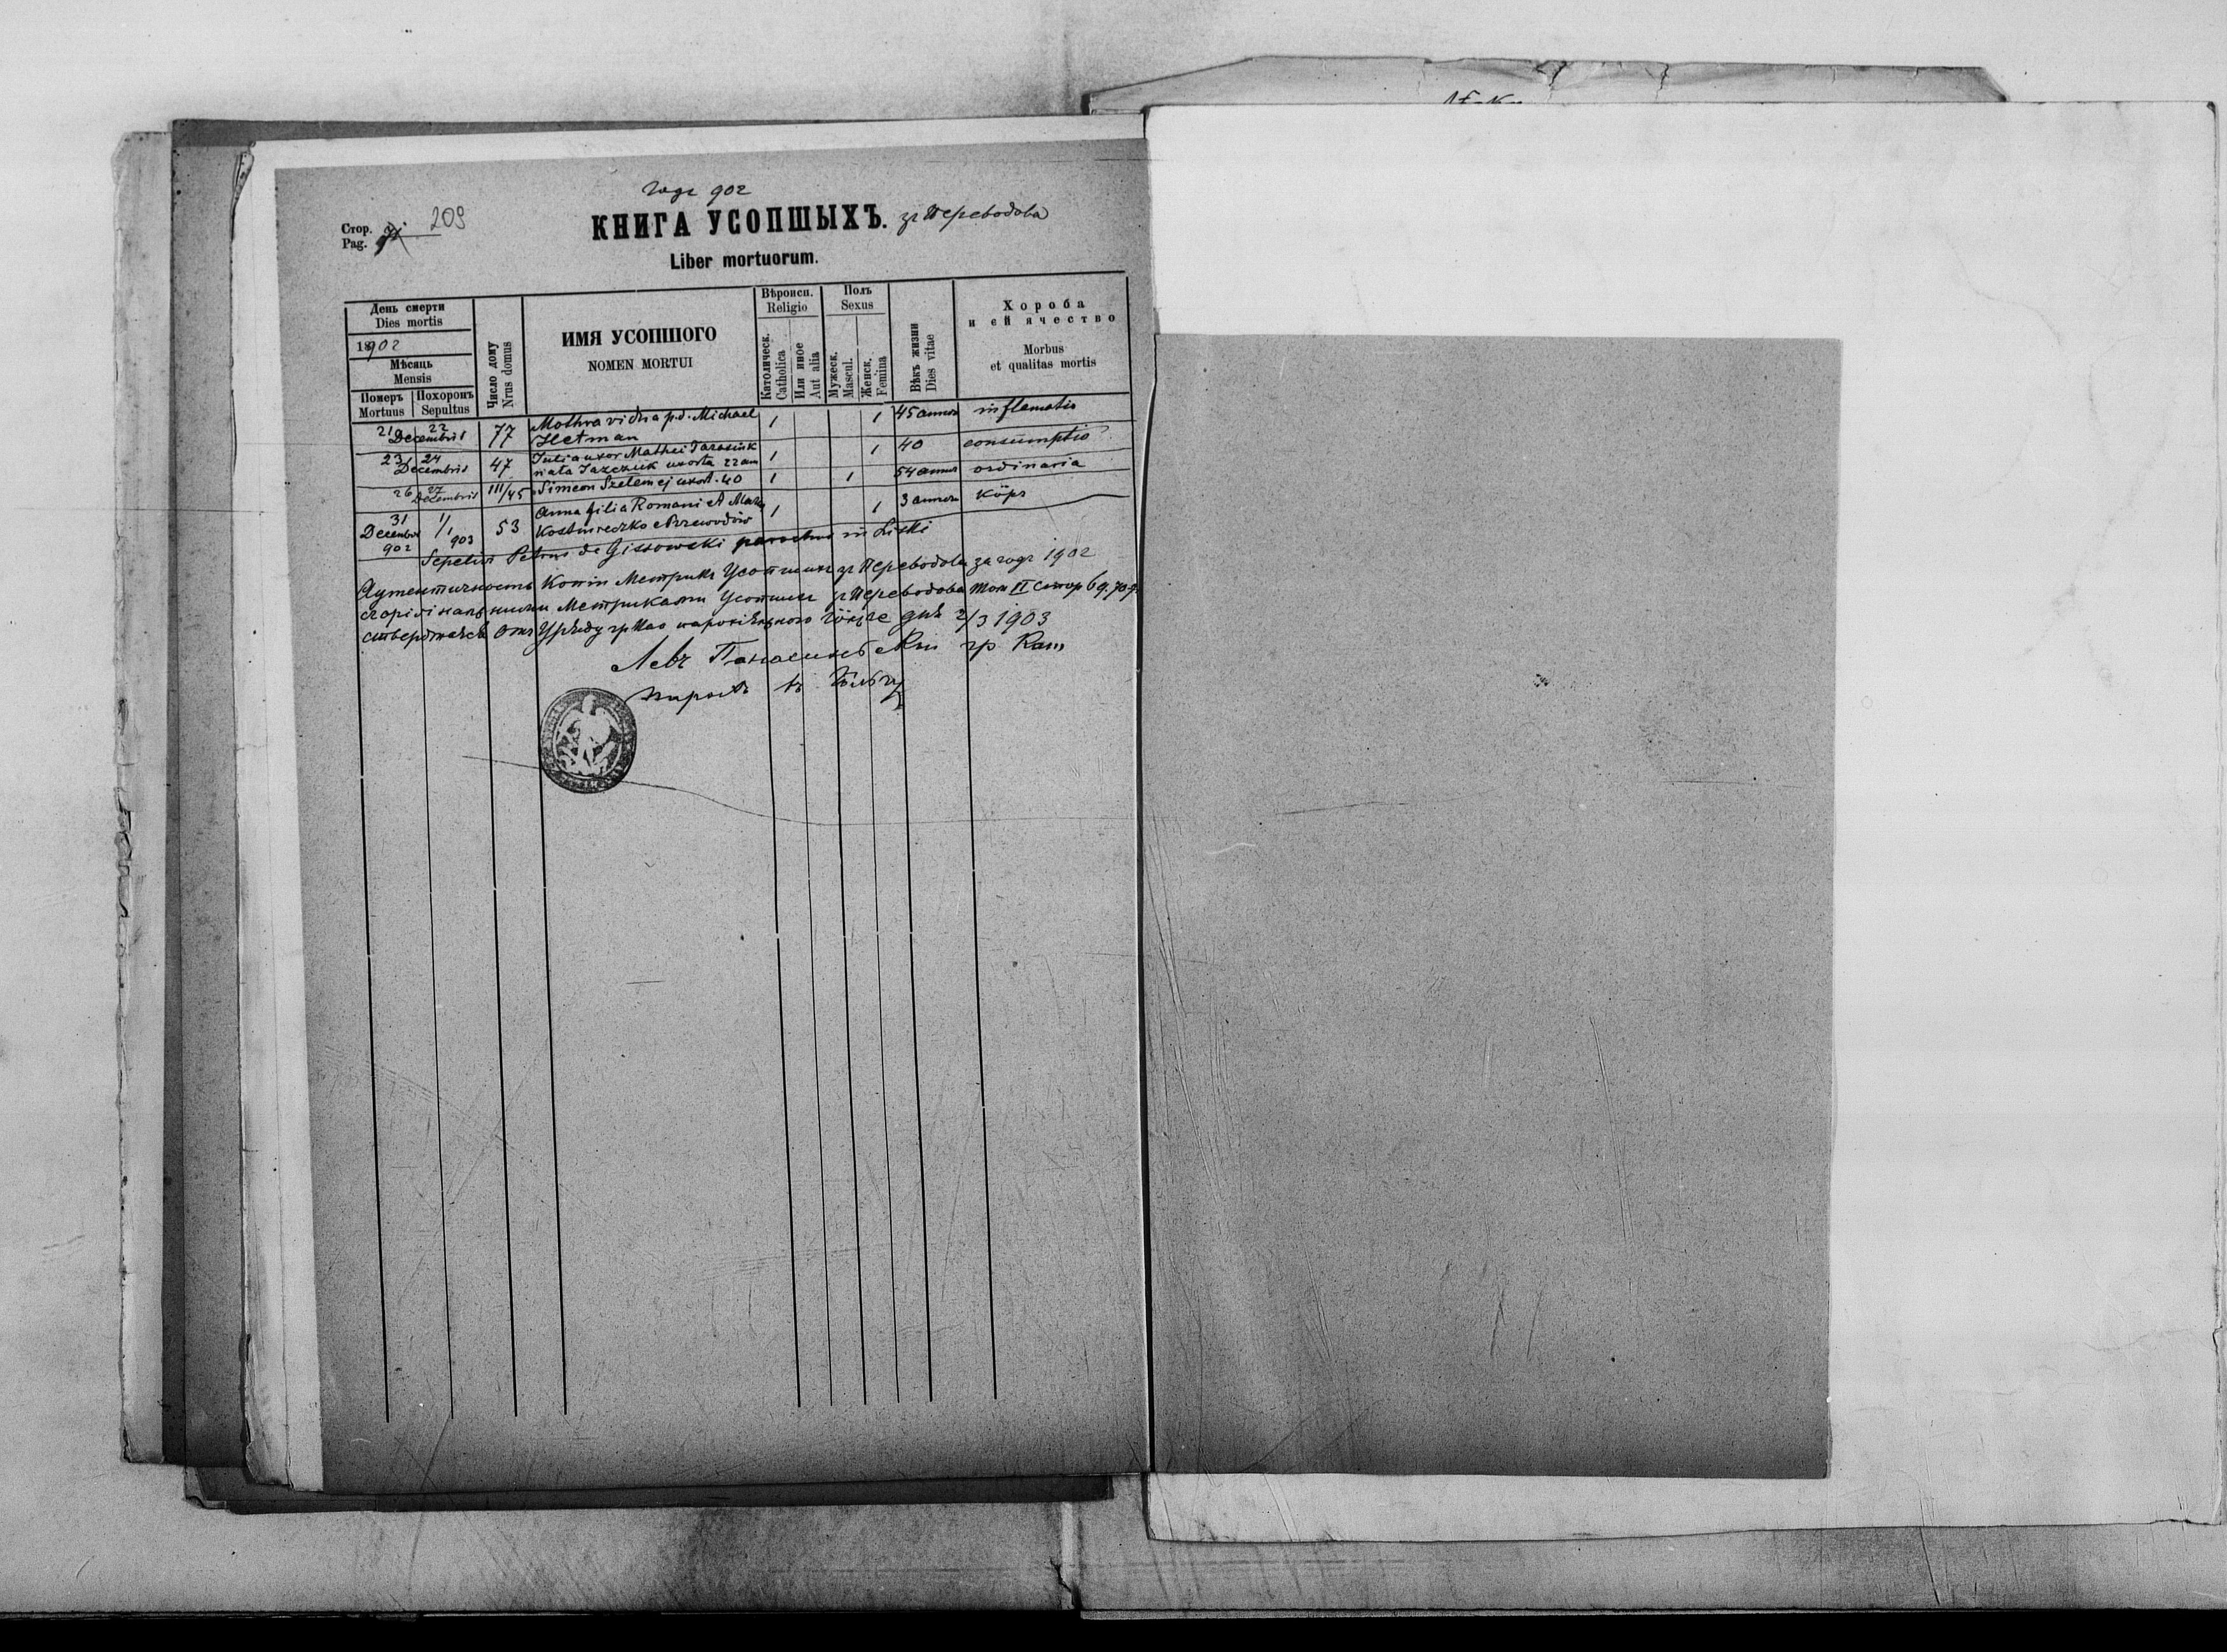 годъ 902
Стор. 209
Pag. 71
КНИГА УСОПШЫХЪ. зъ Переводова
Liber mortuorum.
День смерти
Dies mortis
18902
Мѣсяць
Mensis
Померъ Похоронъ
Mortuus Sepultus
Число дому
Nrus domus
ИМЯ УСОПШОГО
NOMEN MORTUI
Вѣроисп.
Religio
Католическ.
Catholica
Или иное
Aut alia
Полъ
Sexus
Мужеск.
Mascul.
Женск.
Femina
Вѣкъ жизни
Dies vitae
Хороба
и ей ячество
Morbus
et qualitas mortis
21 22 Decembris 77 Mothra vidua p.d. Michael 1 1 45 annor inflamatio
Hetman
23 24 Decembris 47 Julia uxor Mathei Tarasiuk 1 1 40 consumptio
nata Jazczuk uxorta 22 an
26 27 Decembris III/45 Simeon Szelemej uxort. 40 1 1 54 annor ordinaria
31 1/1 53 Anna filia Romani et Mar 1 1 3 annor köps
Decembr 903 Przewodów
902
Sepelivit Petrus de Gissowski parochus in Liski
Аутентичность Копіи Метрикъ Усопшихъ зъ Переводова за годъ 1902
зъ оріґінальными Метриками Усопшихъ зъ Переводова Том II стор 69, 70
стверджаесь Отъ Уряду гр Као парохіяльного дня 2/3 1903
Левъ гр Кат
парохъ въ